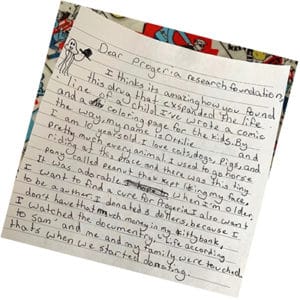 Dear Progeria research foundation,
I thinks its amazing how you found
this drug that exspanded the life
line of a child. I've wrote a comic
and a coloring page for the kids. By
the way, my name is Ottilie. And
I am 10 years old I love cats, dogs, Pigs, and
pretty much every animal. I used to go horse
riding at this place and there was this tiny
pony called peanut that kept licking my face,
It was adorable. when I'm older,
I want to find a cure for Progeria I also want
to be a arther. I donated 5 dollers, because I
don't have that much money in my kittybank,
I saw the documentry, Life according
to Sam and me and my family were touched
thats when we started donating.